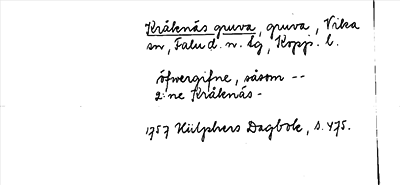 Kråknäs gruva, gruva, Vika
sn, Falu d. n. tg, Kopp. l.
öfwergifne, såsom --
2:ne Kråknäs -
1757 Hülphers Dagbok, s. 475.